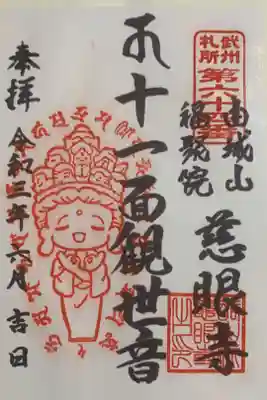 武州
札所
第六十四番
由城山
福聚院
慈眼寺
十一面観世音
奉拝 令和三年六月吉日